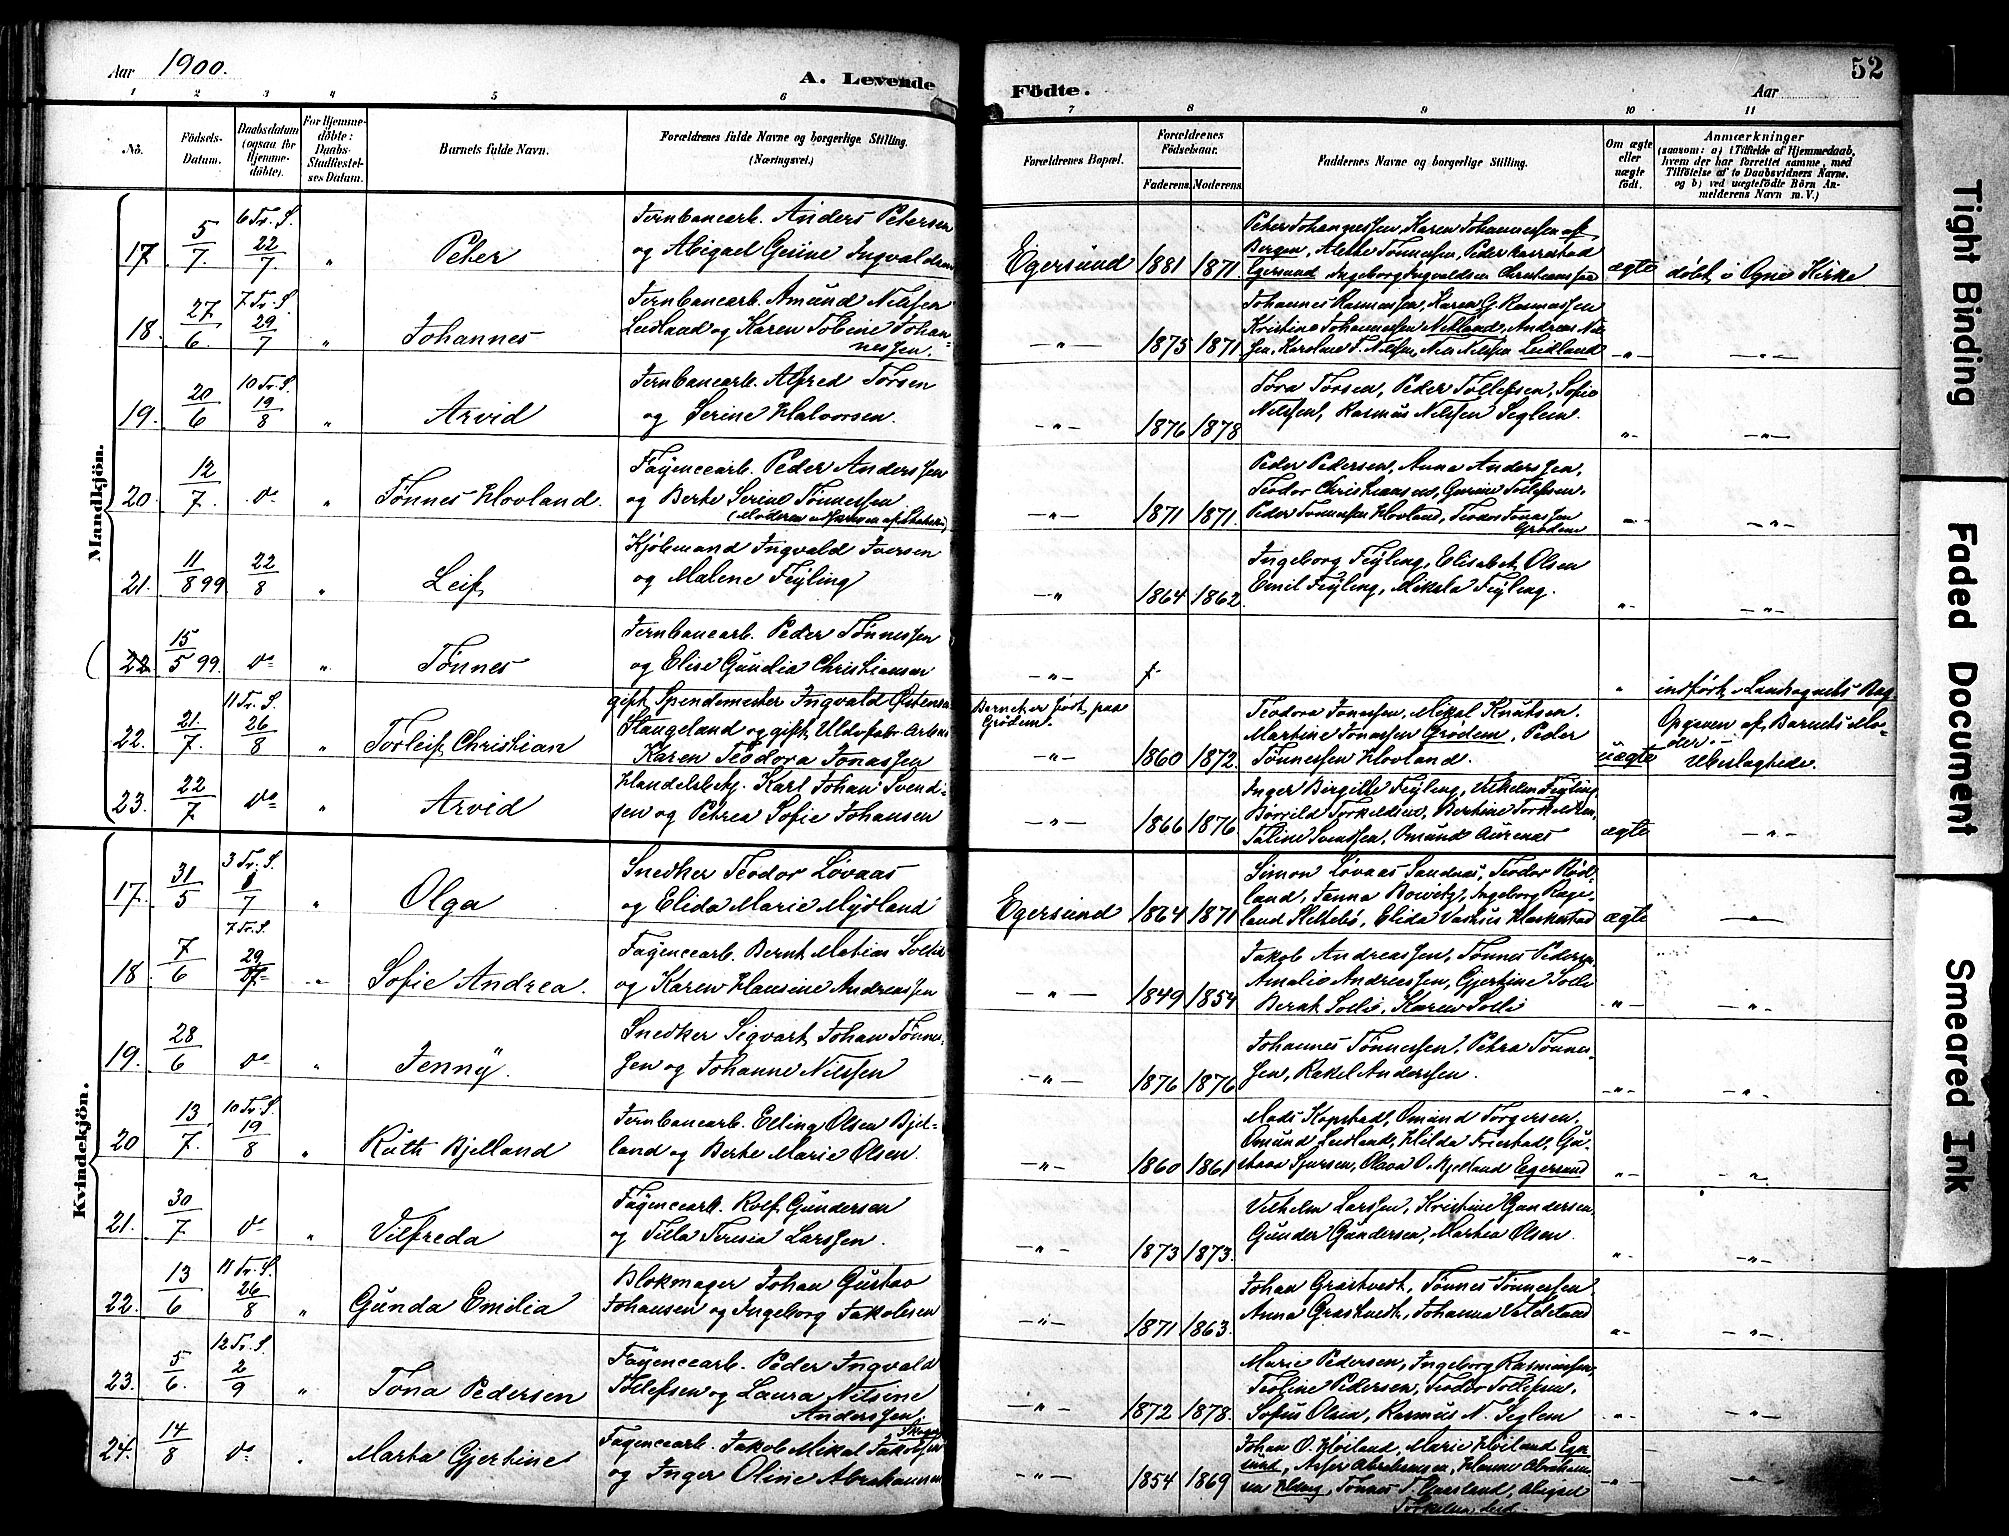 Aar 1900.
A. Levende
Födte.
Aar
52
1 2 3 4 5 6 7 8 9 10 11
No.
Födsels-
Datum.
Daabsdatum
(ogsaa for
Hjemme-
döbte).
For Hjemme-
döbte:
Daabs-
Stadfæstel-
ses Datum.
Barnets fulde Navn.
Forældrenes fulde Navne og borgerlige Stilling.
(Næringsvei.)
Forældrenes Bopæl.
Forældrenes
Födselsaar.
Faderens. Moderens.
Faddernes Navne og borgerlige Stilling.
Om ægte
eller
uægte
födt.
Anmærkninger
(saasom: a) i Tilfælde af Hjemmedaab,
hvem der har forrettet samme, med
Tilföielse af to Daabsvidners Navne.
og b) ved uægtefödte Börn An-
melderens Navn m.V.)
Mandkjön.
17. 5/7. 6 Tr. S. 22/7. " Peter
Jernbanearb. Anders Petersen
og Abigael Gurine Ingvaldsen
Egersund 1881 1871
Peter Johannessen, Karen Johannessen af
Bergen, Alethe Tönnessen, Peder Aarrestad
Egersund, Ingeborg Ingvaldsen Christiansen
ægte döbt i Ogne Kirke
18. 27/6. 7 Tr. S. 29/7 " Johannes
Jernbanearb. Amund Nilsen
Leidland og Karen Tobine Johan-
nessen.
— " — 1875 1871
Johannes Rasmussen, Karen G. Rasmussen
Kristine Johannessen Netland, Andreas Nil-
sen, Karoline T. Nilsen, Nils Nilsen Leidland
- " - — " —
19. 20/6 10 Tr. S. 19/8 " Arvid
Jernbanearb. Alfred Torsen
og Serine Halvorsen.
— " — 1876 1878
Tora Torsen, Peder Tollefsen, Sofie
Nilssen, Rasmus Nilssen Seglem.
" - — " —
20. 12/7. do " Tönnes Hovland.
Fayencearb. Peder Anderssen
og Berte Serine Tönnessen
— " — 1871 1871
Peder Pedersen, Anna Anderssen,
Teodor Christiansen, Gurine Tollefsen.
Peder Tönnessen Hovland, Teodor Jonassen
Grödem
- " - — " —
21. 11/8 99 22/8 " Leif
Kjöbmand Ingvald Iversen
og Malene Feyling
— " 1864 1862
Ingeborg Feyling, Elisabet Olsen
Emil Feyling, Mikala Feyling.
" - — " —
( 22 15/5 99. do " Tönnes
Jernbanearb. Peder Tönnessen
og Elise Gundia Christiansen
— " —
" indfört i Landsognets Bog
22. 21./7. 11 Tr. S. 26/8 " Torleif Christian
gift Spendemester Ingvald Östensen
Stangeland og gift Uldvfabr. Arbeid
Karen Teodora Jonassen
Barnet er födt paa
Grödem.
— " — 1860 1872.
Teodora Jonassen, Mikal Knutsen.
Martine Jonassen Grödem, Peder
Tönnessen Hovland.
uægte
Opgaven af Barnets Mo-
der.
Ubeslægtede.
23. 22/7 do " Arvid
Handelsbetj. Karl Johan Svend-
sen og Petrea Sofie Johansen
— " — 1866 1876
Inger Birgitte Feyling, Vilhelm Feyling
Börrild Torkeldsen, Bertine Torkeldsen,
Taline Svendsen, Omund Aurenes
ægte — " —
Kvindekjön.
17. 31/5 3 Tr. S. 1/7 " Olga
Snedker Teodor Lövaas
og Elida Marie Mydland
Egersund 1864 1871
Simon Lövaas Sandnes, Teodor Röd-
land, Janna Bowitz, Ingeborg Rage-
land Slettebö, Elida Vashus Haskestad
ægte — " —
18. 7/6 7 Tr. S. 29/7 " Sofie Andrea.
Fayencearb. Bernt Matias Solli
og Karen Hansine Andreassen
— " — 1849 1854
Jakob Andreassen, Tönnes Pedersen
Amalie Andreassen, Gjertine Solli
Bernt Solli, Karen Solli
" - — " —
19. 28/6 do " Jenny.
Snedker Sigvart Johan Tönnes-
sen og Johanne Nilssen
- " — 1876 1876
Johannes Tönnessen, Petra Tönnes-
sen, Rakel Anderssen.
- " - — " —
20 13/7. 10 Tr. S. 19/8 " Ruth Bjelland
Jernbanearb. Elling Olsen Bjel-
land og Berte Marie Olsen.
— " — 1860 1861
Mads Kopstad, Omund Torgersen.
Omund Leidland, Hilda Frøstad, Gu-
stava Sjursen, Olava O. Bjelland Egersund
" - - " -
21. 30/7 do " Vilfreda
Fayencearb. Rolf Gundersen
og Tilla Teresia Larssen.
— " — 1873 1873.
Vilhelm Larssen, Kristine Gundersen.
Gunder Gundersen, Martea Olsen.
" - — " —
22. 13/6 11 Tr. S. 26/8 " Gunda Emilia
Blokmager Johan Gustav
Johansen og Ingeborg Jakobsen
— " — 1871 1863.
Johan Grastvedt, Tönnes Tönnessen
Anna Grastvedt, Johanna Veldeland
" - — " —
23. 5/6. 12 Tr. S. 2/9 " Tona Pedersen
Fayencearb. Peder Ingvald
Tollefsen og Laura Nilsine
Anderssen,
— " — 1872 1878.
Marie Pedersen, Ingeborg Rasmussen,
Teoline Pedersen, Teodor Tollefsen.
Sofus Olsen, Rasmus N. Seglem
" - — " —
24. 14/8 do " Marta Gjertine
Fayencearb. Jakob Mikal Jakobsen
og Inger Oline Abrahamsen
— " — 1854 1869
Johan O. Höiland, Marie Höiland Eger-
sund, Asser Abrahamsen, Hanne Abraham-
sen
" - — " —
Tight Binding
Faded Document
Smeared Ink